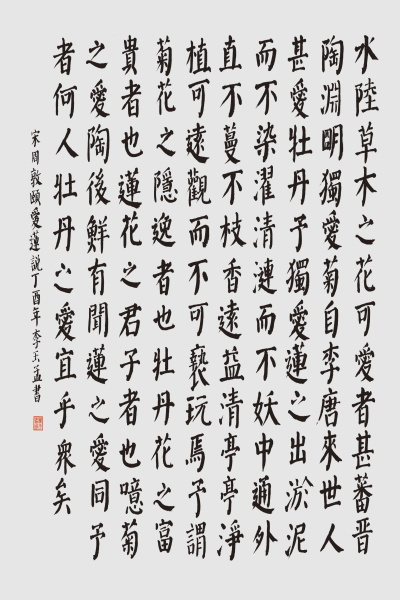 水陸草木之花可愛者甚蕃晋
陶淵明獨愛菊自李唐來世人
甚愛牡丹予獨愛蓮之出淤泥
而不染濯清漣而不妖中通外
直不蔓不枝香遠益清亭亭淨
植可遠觀而不可褻玩焉予謂
菊花之隱逸者也牡丹花之富
貴者也蓮花之君子者也噫菊
之愛陶後鮮有聞蓮之愛同予
者何人牡丹之愛宜乎衆矣
宋周敦頤愛蓮說丁酉年李孟書